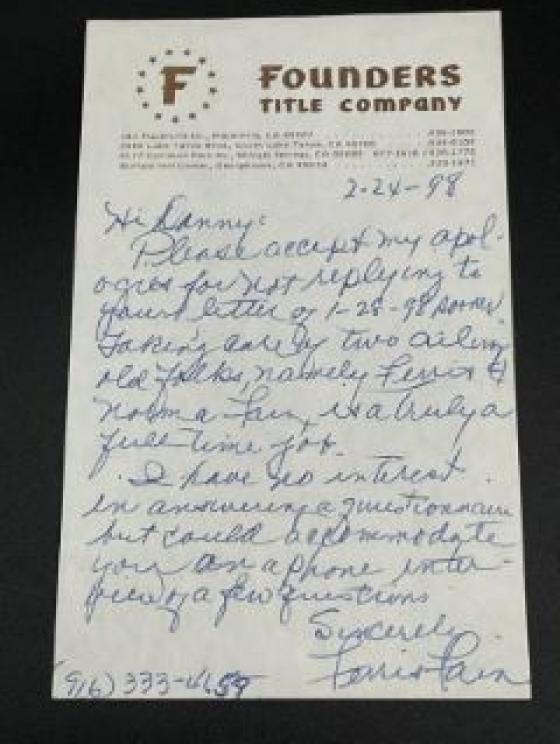 F
FOUNDERS
TITLE COMPANY
2-24-98
Hi Danny:
Please accept my apol-
ogies for not replying to
your letter of 1-28-98 sooner.
Taking care of two ailing
old folks, namely Ferris &
Norma Fain, is a truly a
full time job.
I have no interest
in answering a questionnaire
but could accommodate
you on a phone inter-
view of a few questions
Sincerely,
Ferris Fain
(916) 333-4659